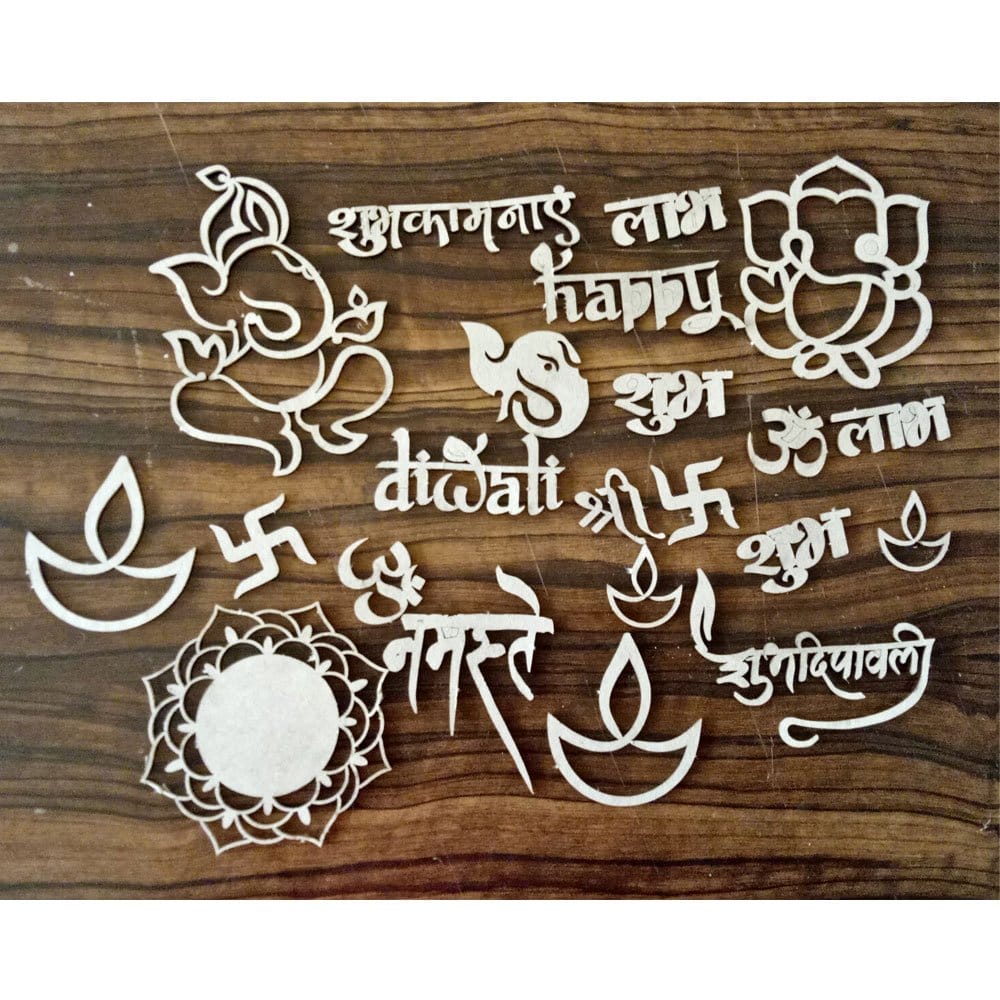 शुभकामनाएं लाभ
happy
शुभ
ॐ लाभ
diwali
श्री
शुभ
ॐ
नमस्ते
शुभदिपावली